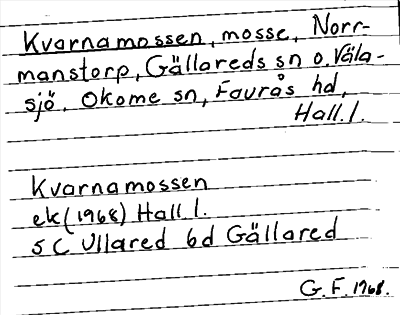 Kvarnamossen, mosse, Norr-
manstorp, Gällareds sn o. Väla-
sjö, Okome sn, Faurås hd,
Hall. l.
Kvarnamossen
ek (1968) Hall l.
5 C Ullared 6d Gällared
G. F. 1968.